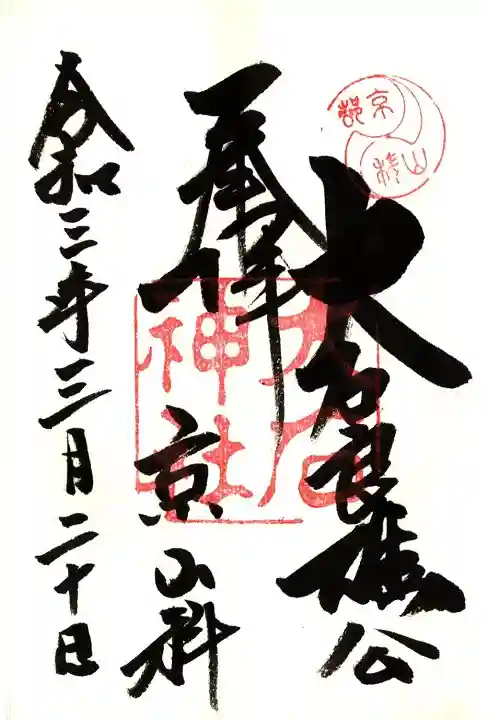 京都
山科
大石良雄公
京山科
令和三年三月二十日
大石
神社